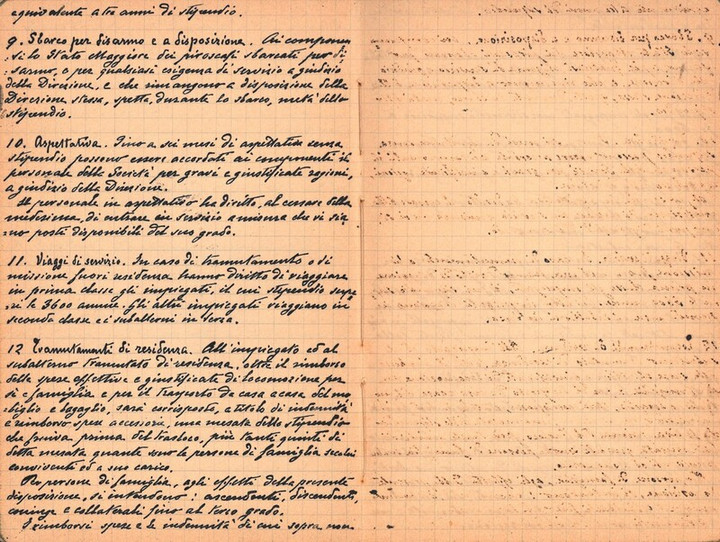 equivalente a tre anni di stipendio.
9. Sbarco per disarmo e a disposizione. Ai componen
ti lo Stato Maggiore dei piroscafi sbarcati per di
sarmo, o per qualsiasi esigenza di servizio a giudizio
della Direzione, e che rimangono a disposizione della
Direzione stessa, spetta, durante lo sbarco, metà dello
stipendio.
10. Aspettativa. Fino a sei mesi di aspettativa senza
stipendio possono essere accordati ai componenti il
personale della Società per gravi e giustificate ragioni,
a giudizio della Direzione.
Il personale in aspettativa ha diritto, al cessare della
medesima, di entrare in servizio a misura che vi sia-
no posti disponibili del suo grado.
11. Viaggi di servizio. In caso di tramutamento o di
missione fuori residenza hanno diritto di viaggiare
in prima classe gli impiegati, il cui stipendio supe
ri le 3600 annue. Gli altri impiegati viaggiano in
seconda classe e i subalterni in terza.
12 Tramutamenti di residenza. All'impiegato ed al
subalterno tramutato di residenza, oltre il rimborso
delle spese effettive e giustificate di locomozione per
sè e famiglia e per il trasporto da casa a casa del mo
biglio e bagaglio, sarà corrisposto, a titolo di indennità
e rimborso spese accessorie, una mesata dello stipendio
che fruiva prima del trasloco, più tanti quinti di
detta mesata quante sono le persone di famiglia seco lui
conviventi ed a suo carico.
Per persone di famiglia, agli effetti della presente
disposizione, si intendono: ascendenti, discendenti,
coniuge e collaterali fino al terzo grado.
I rimborsi spese e le indennità di cui sopra non